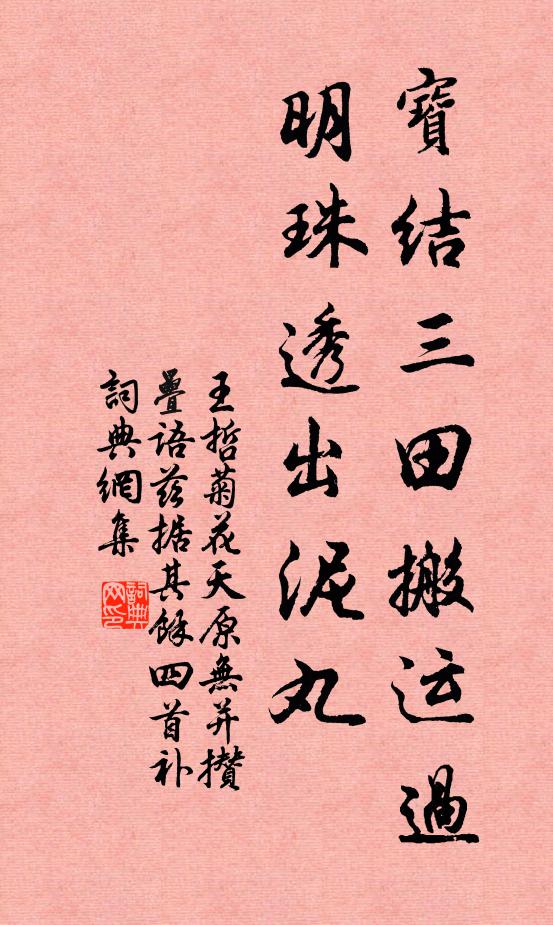 寶結三田搬运過
明珠透出泥丸
王哲菊花天原無并攢
疊语兹据其餘四首补
詞典網集
詞典网印